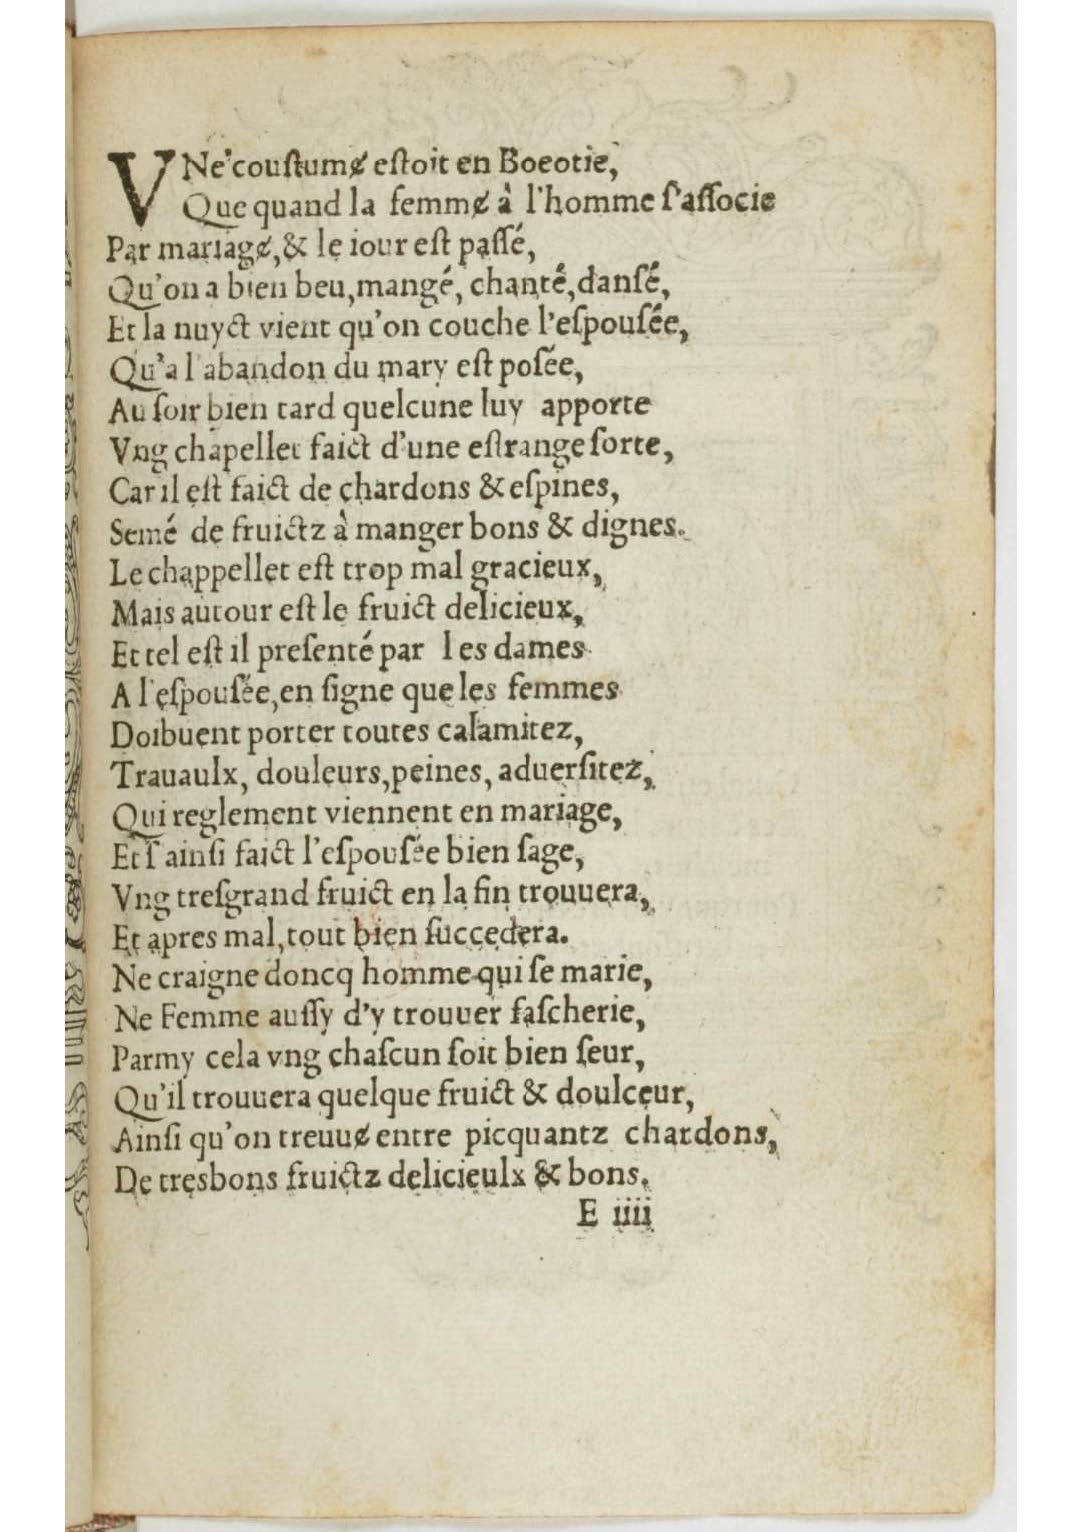 VNe coustumɇ estoit en Boeotie,
Que quand la femmɇ à l'homme s'associe
Par mariagɇ, & le iour est passé,
Qu'on a bien beu, mangé, chanté, dansé,
Et la nuyct vient qu'on couche l'espousée,
Qu'a l'abandon du mary est posée,
Au soir bien tard quelcune luy apporte
Vng chapellet faict d'une estrange sorte,
Car il est faict de chardons & espines,
Semé de fruictz à manger bons & dignes.
Le chappellet est trop mal gracieux,
Mais autour est le fruict delicieux,
Et tel est il presenté par les dames
A l'espousée, en signe que les femmes
Doibuent porter toutes calamitez,
Trauaulx, douleurs, peines, aduersitez,
Qui reglement viennent en mariage,
Et s'ainsi faict l'espousée bien sage,
Vng tresgrand fruict en la fin trouuera,
Et apres mal, tout bien succedera.
Ne craigne doncq homme qui se marie,
Ne Femme aussy d'y trouuer fascherie,
Parmy cela vng chascun soit bien seur,
Qu'il trouuera quelque fruict & doulceur,
Ainsi qu'on treuuɇ entre picquantz chardons,
De tresbons fruictz delicieulx & bons.
E iiii